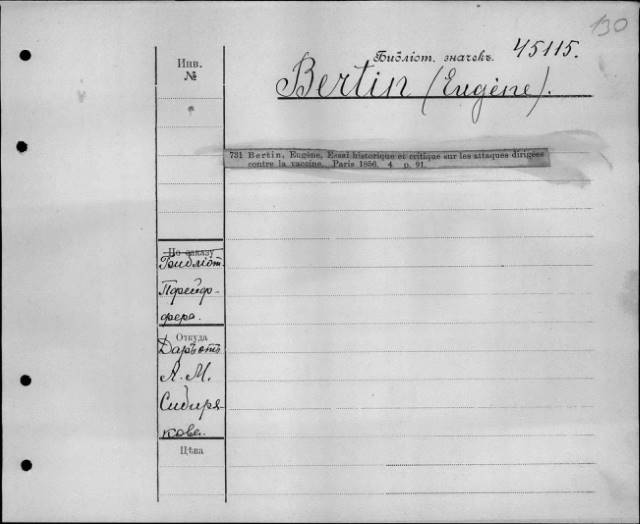 130
Инв.
№
Библіот. значекъ. 45115.
Bertin (Eugène).
731 Bertin, Eugène, Essai historique et critique sur les attaques dirigées
contre la vaccine. Paris 1856. 4 p. 91.
По заказу
Библіот.
Пфейф-
фера.
Откуда
Даръ отъ
А. М.
Сибиря-
кова.
Цѣна